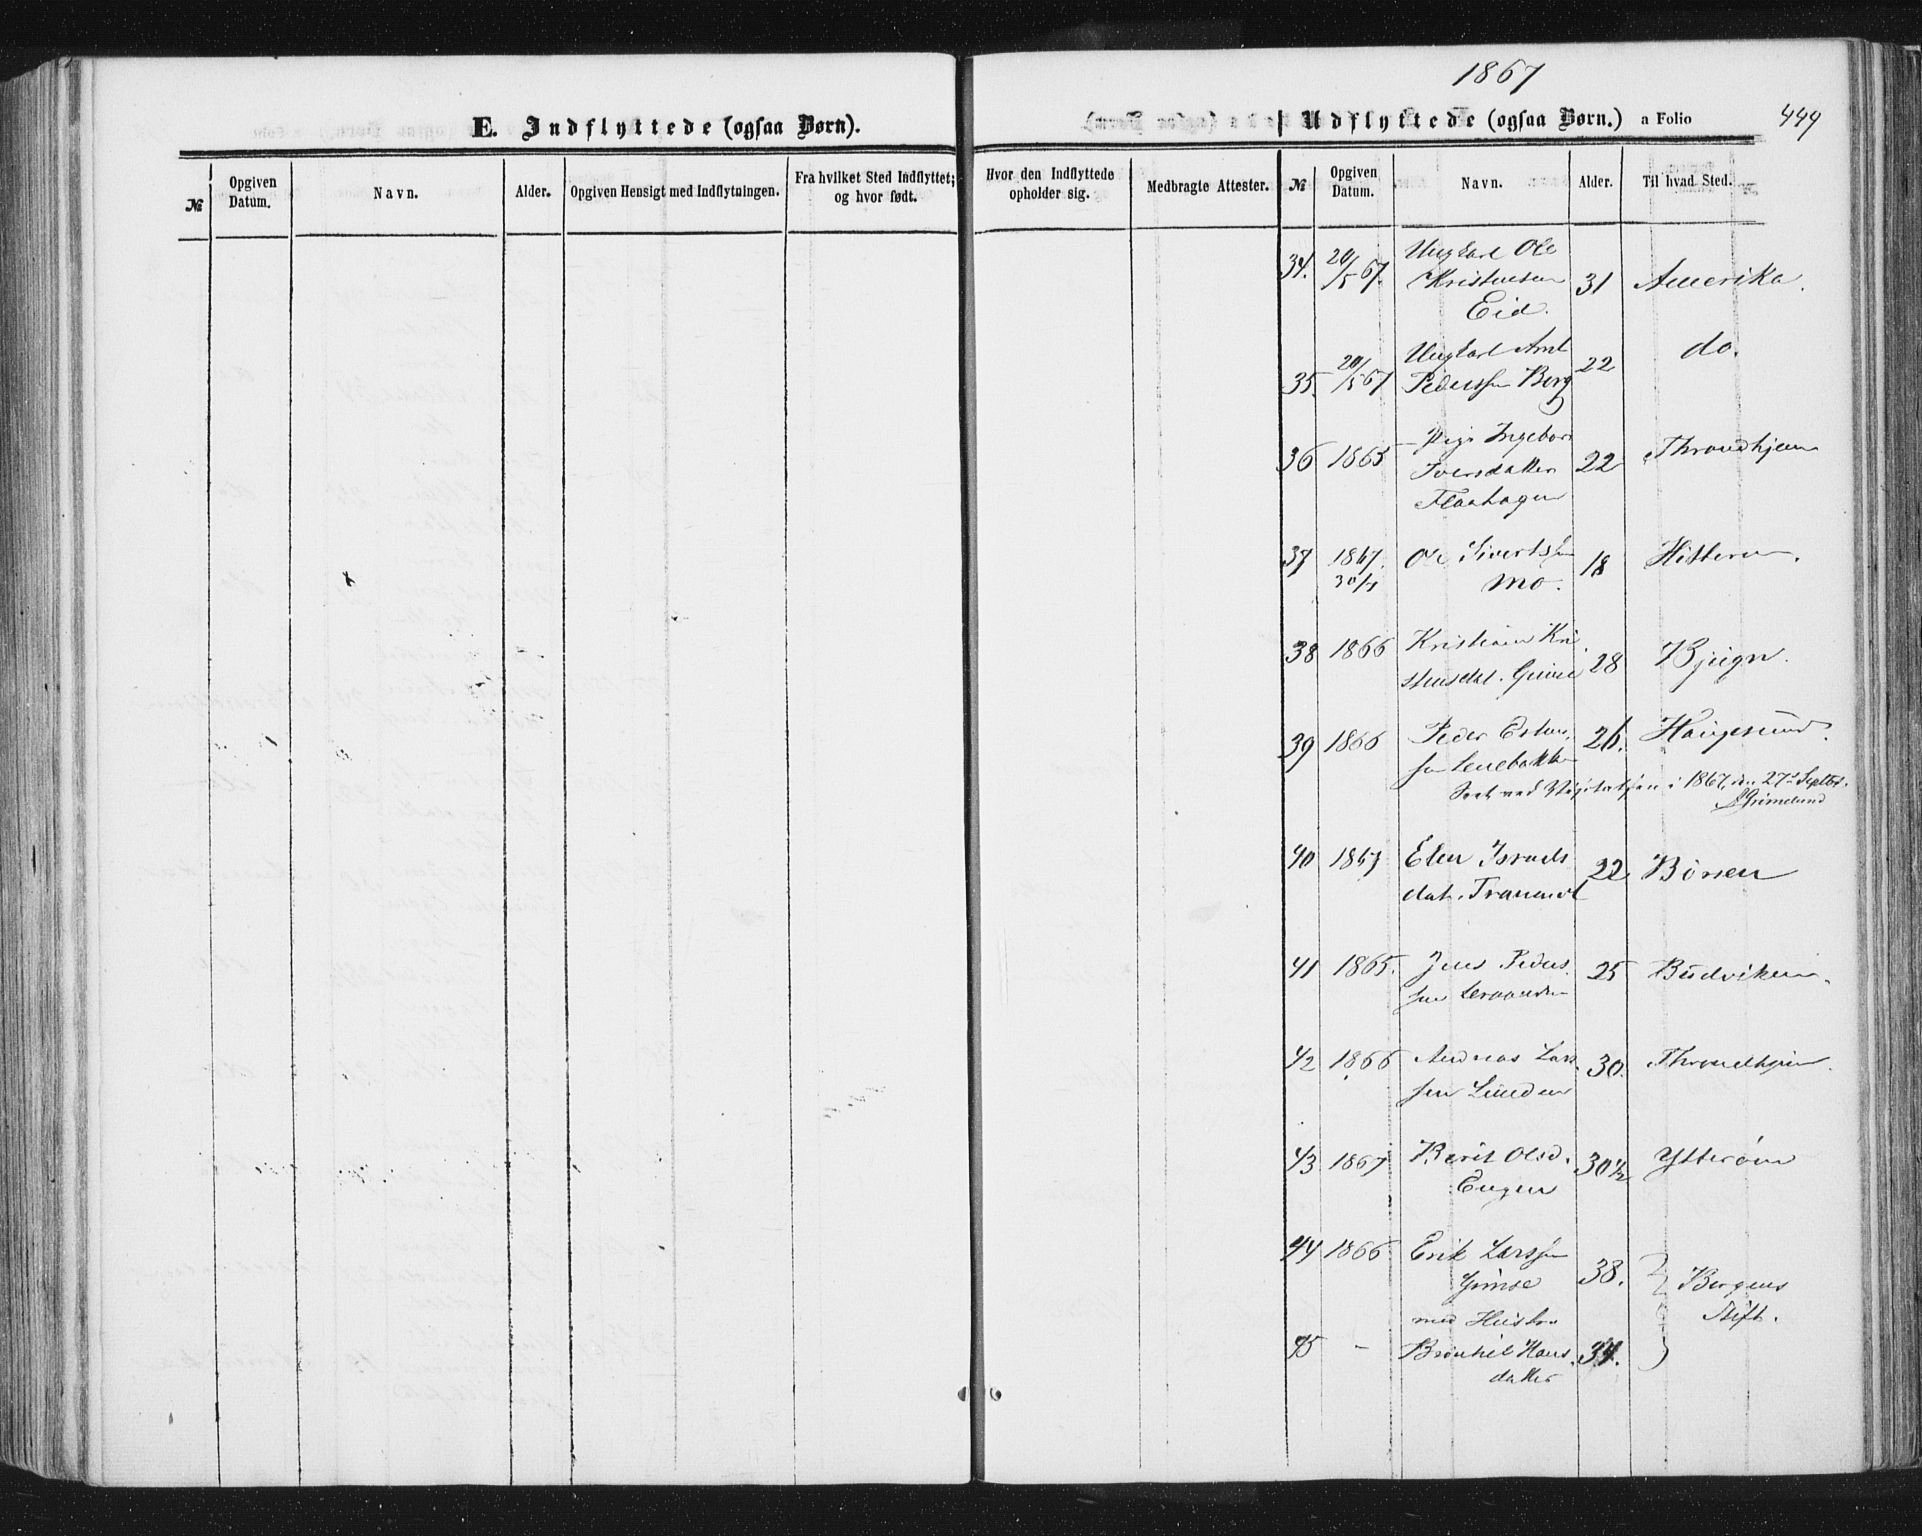 1867
E. Indflyttede (ogsaa Børn).
Udflyttede (ogsaa Børn.) a Folio 449
№
Opgiven Datum.
Navn.
Alder.
Opgiven Hensigt med Indflytningen.
Fra hvilket Sted Indflyttet; og hvor født.
Hvor den Indflyttede opholder sig.
Medbragte Attester.
№
Opgiven Datum.
Navn.
Alder.
Til hvad Sted.
34. 20/5 67. Ungkarl Ole
Kristensen 31 Amerika.
Eid.
35. 20/5 67 Ungkarl Arnt 22 do.
Pederssen Berg
36 1865 Pige Ingebor
Iversdatter 22 Throndhjem
Flaahagen
37 1867. Ole Sivertssen 18 Hitteren.
30/7 Mo.
38 1866 Kristian Kri
28 Bjugn.
39 1866 Peder Esten, 26. Haugesund.
sen
Seet ved Visitatsen i 1867, den 27de Septbr.
Grimelund
40 1867 Elen Israels 22 Børsen
dat.
41 1865. Jens Peder 25 Budviken.
sen
42 1866 Andreas Lars 30. Throndhjem.
sen Linden
43 1867 Berit Olsd. 30½ Ytterøen
Engen
44 1866 Erik Larssen
Gimse 38. Bergens
med Hustr. Stift.
45 - Brønhil Hans 34.
datter